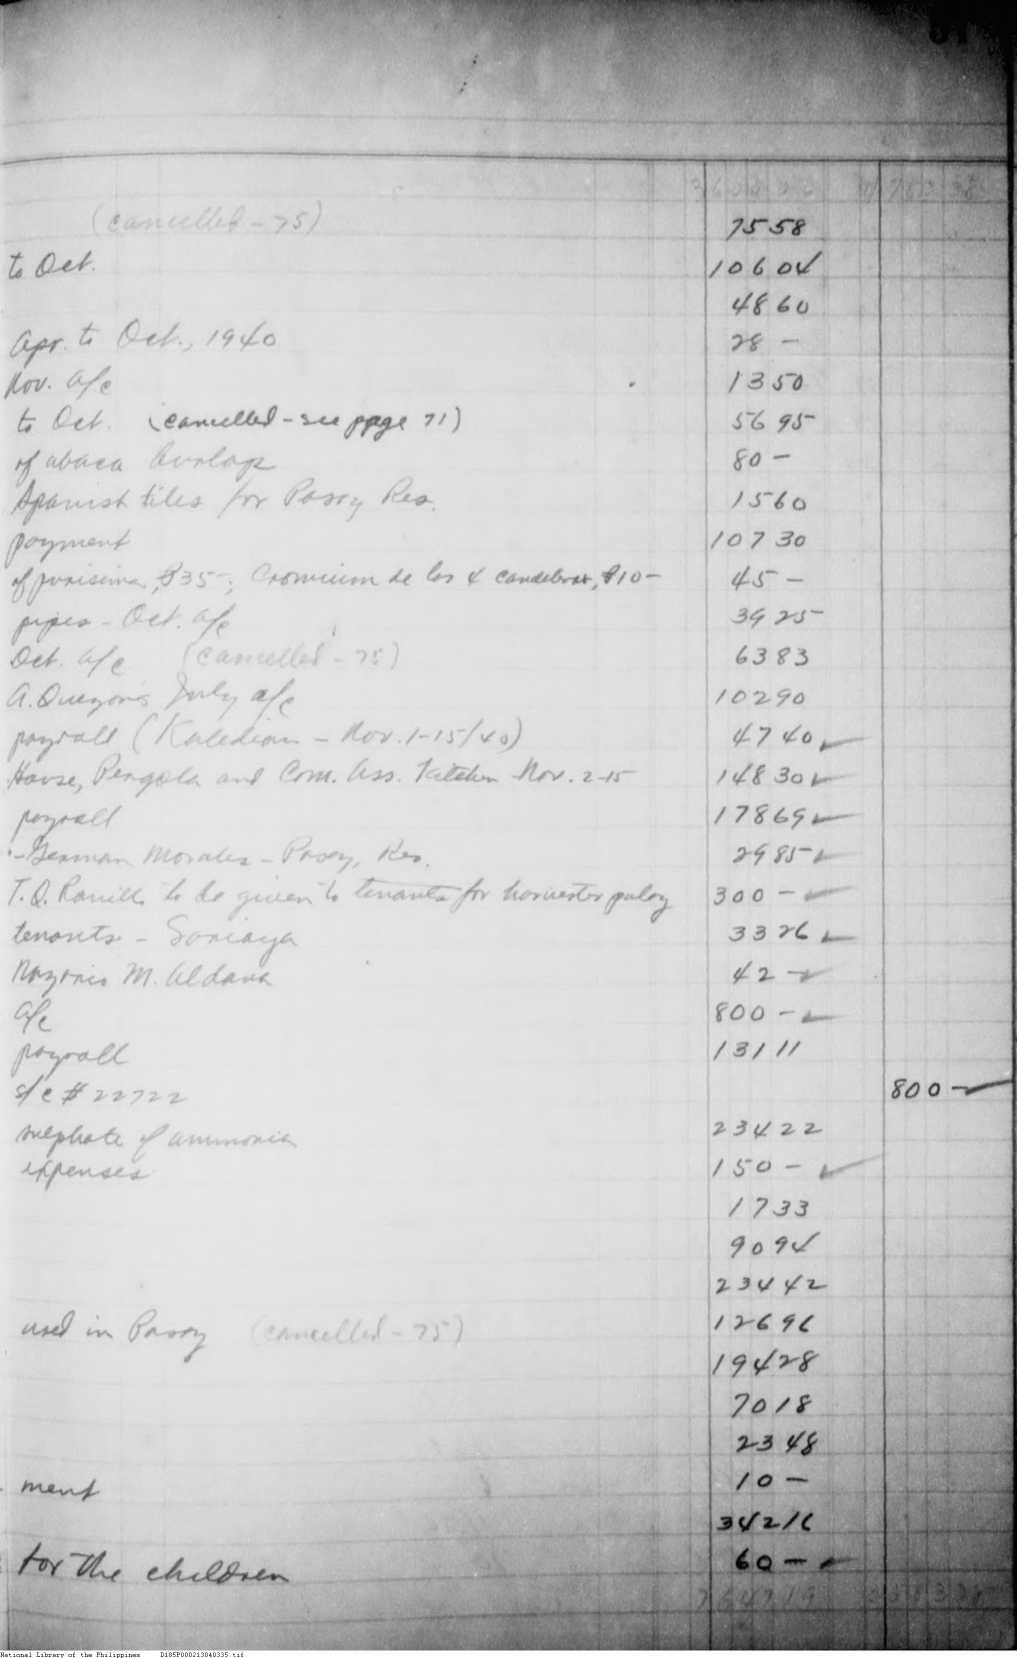 (cancelled - 75) 75 58
to Oct. 106 04
48 60
Apr. to Oct., 1940 28 -
Nov. a/c 13 50
to Oct. (cancelled - see page 71) 56 95
of abaca burlap 80 -
Spanish tiles for Pasay Res. 15 60
payment 107 30
of purisima, ₱35-; Cromium de los 4 candeleros, ₱10- 45 -
pipes - Oct. a/c 39 25
Oct. a/c (cancelled - 75) 63 83
A. Quezon's July a/c 102 90
payroll (Kaledian - Nov. 1-15/40) 47 40 ✓
House, Pergola and Com. Ass. Kitchen Nov. 2-15 148 30 ✓
payroll 178 69 ✓
- German Morales - Pasay, Res. 29 85 ✓
T.Q. to be given to tenants for harvester palay 300 - ✓
tenants - Sariaya 33 26 ✓
M. Aldana 42 - ✓
a/c 800 - ✓
payroll 131 11
s/c # 22722 800 - ✓
sulphate of ammonia 234 22
expenses 150 - ✓
17 33
90 94
234 42
used in Pasay (cancelled - 75) 126 96
194 28
70 18
23 48
ment 10 -
342 16
for the children 60 - ✓
National Library of the Philippines D185P000213040335.tif